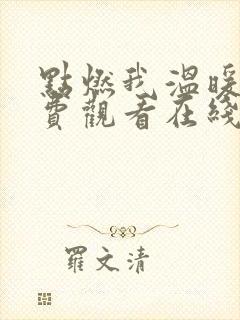 點燃我溫暖
費觀看在綫
羅文清